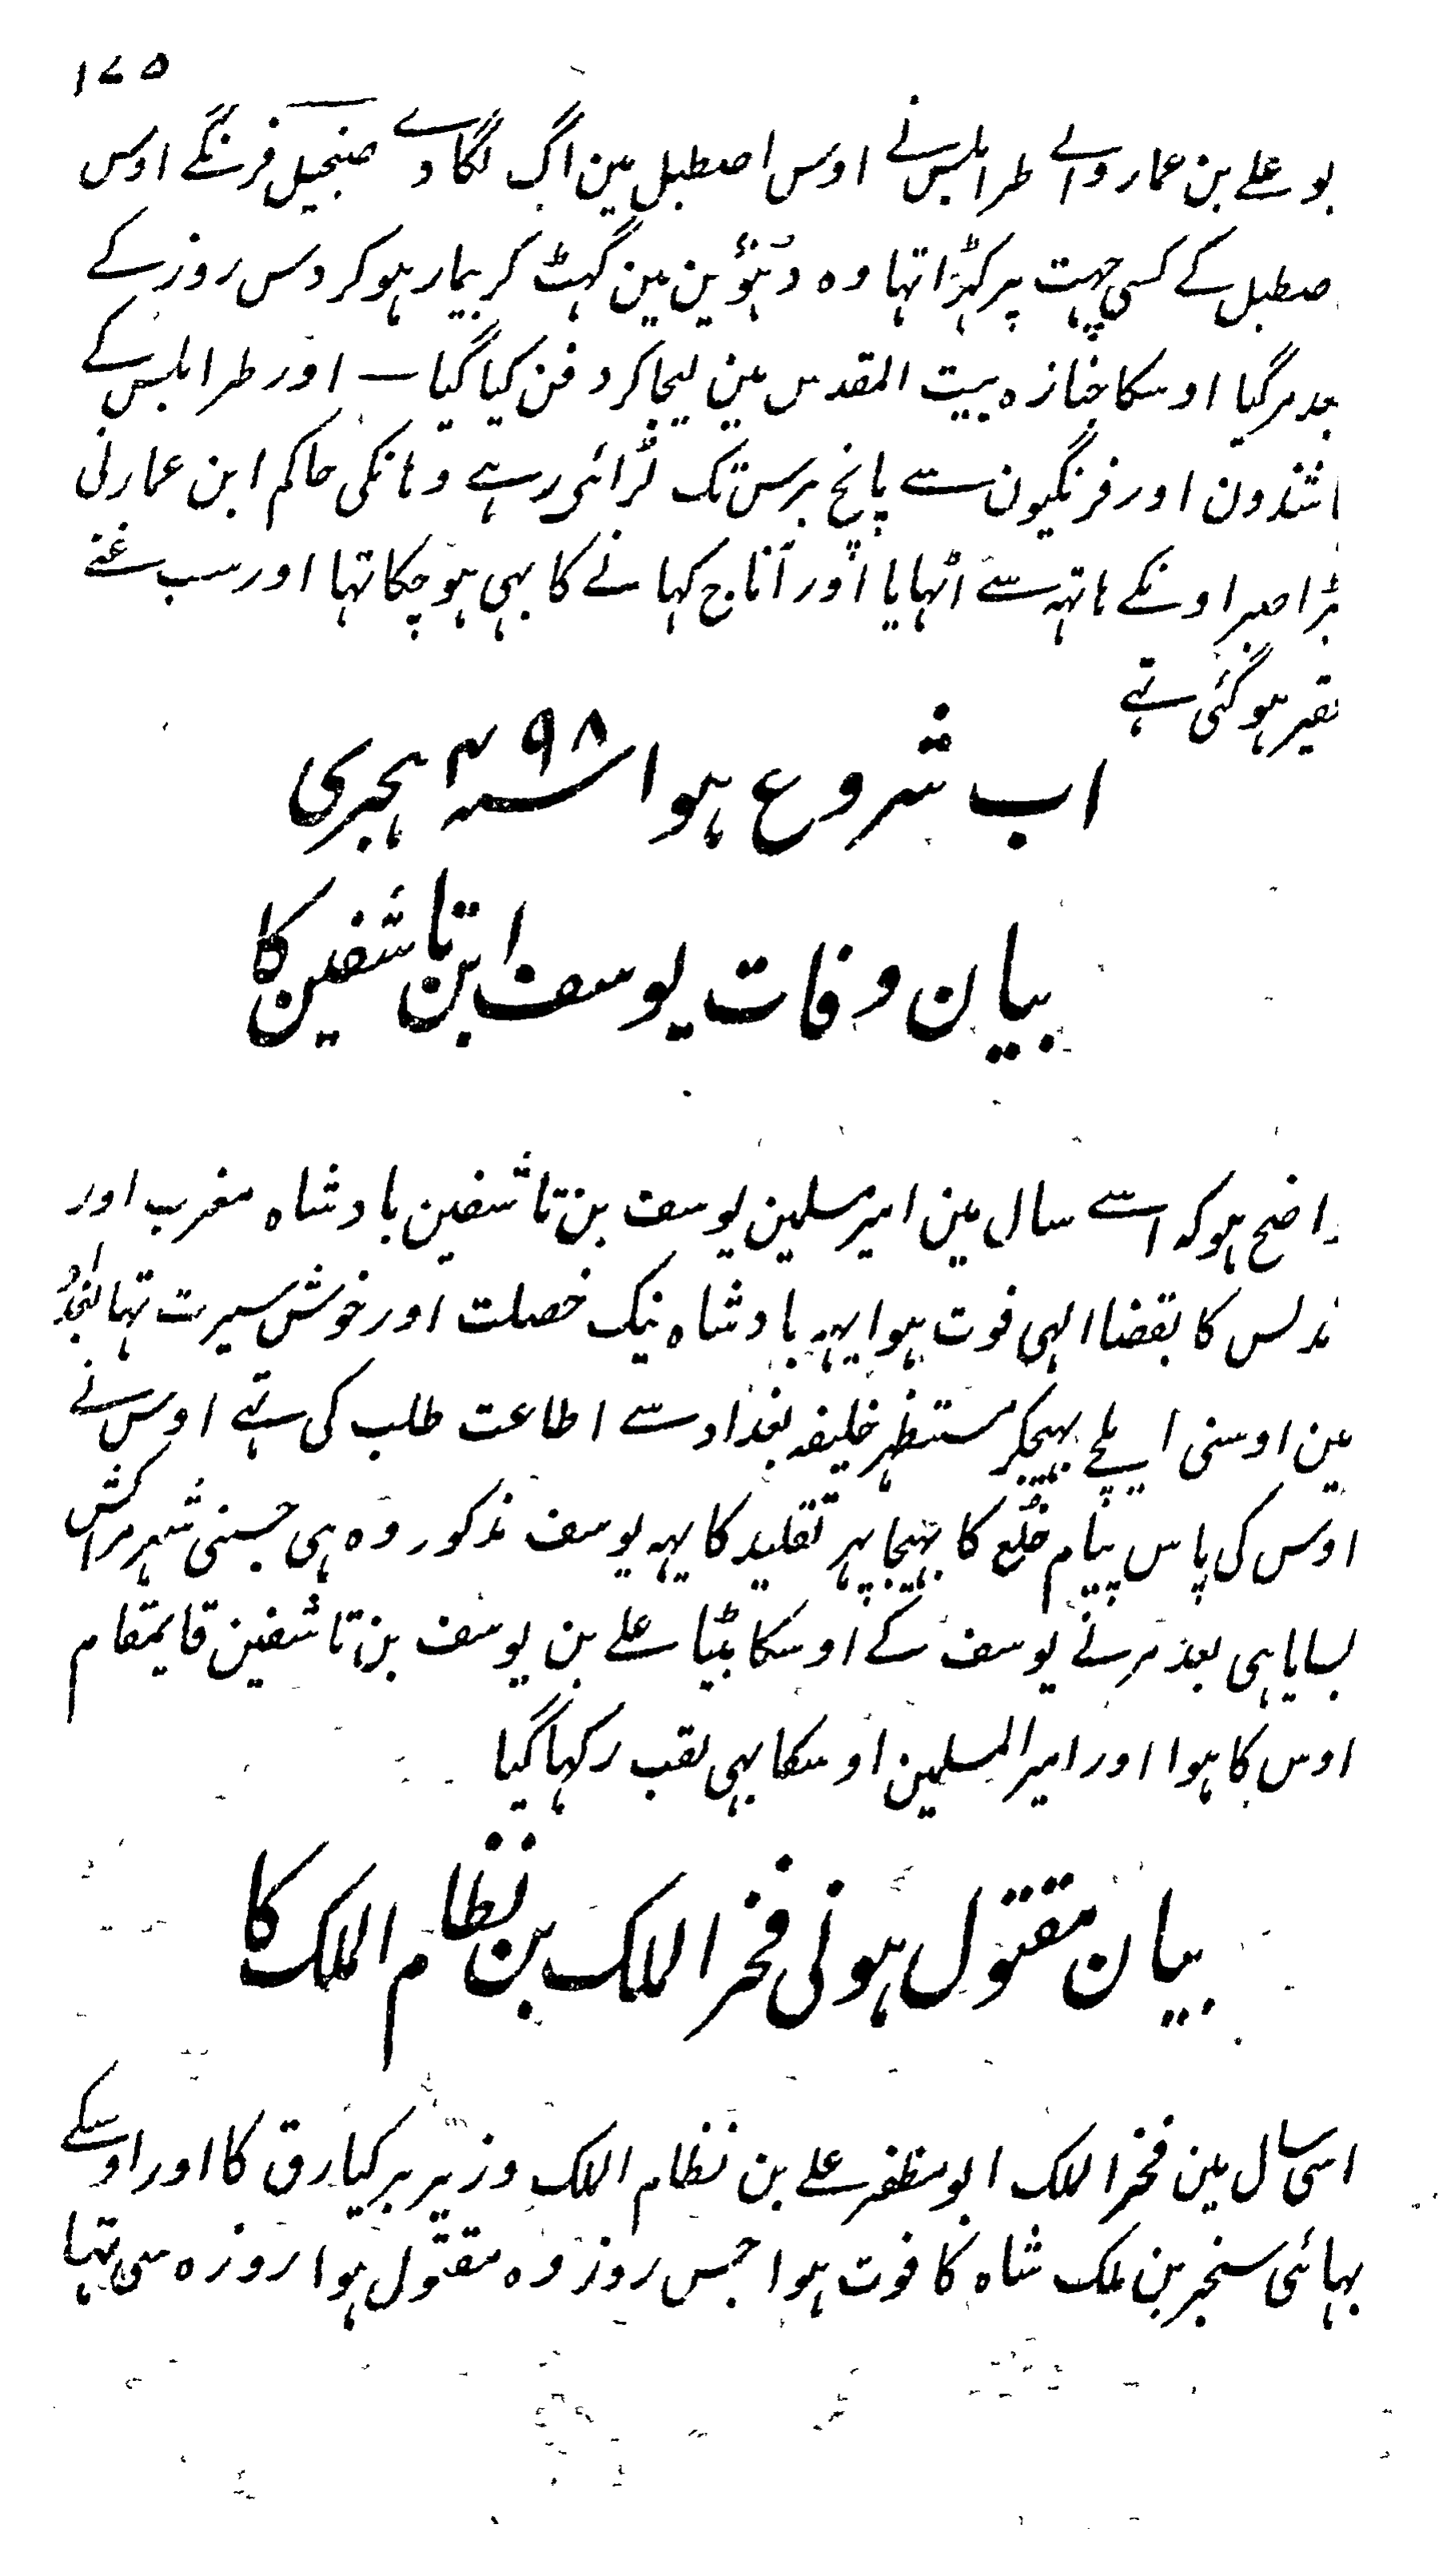 ۱۷۵
بو علے بن عمار والے طرابلس نے اوس اصطبل مین اگ لگا دے صنجیل فرنگے اوس
صطبل کے کسی چہت پر کہڑا تہا وہ دہوٗین مین گہٹ کر بیمار ہوکر دس روز کے
بعد مرگیا اوسکا جنازہ بیت المقدس مین لیجا کر دفن کیا گیا ــ اور طرابلس کے
اشندون اور فرنگیون سے پانچ برس تک لڑائی رہے وہانکی حاکم ابن عمار نی
بڑا صبر اونکے ہاتہہ سے اٹہایا اور اناج کہانے کا بہی ہوچکا تہا اور سب غنے
فقیر ہوگئی تہے
اب شروع ہوا سنہ ۴۹۸ ہجری
بیان وفات یوسف ابن تاشفین کا
واضح ہوکہ اسے سال مین امیر مسلمین یوسف بن تاشفین بادشاہ مغرب اور
ندلس کا بقضا الہی فوت ہوا یہہ بادشاہ نیک خصلت اور خوش سیرت تہا
مین اوسنی ایلچے بہیجکر مستظہر خلیفہ بغداد سے اطاعت طلب کی تہے اوس نے
اوس کی پاس پیام خلع کا بہیجا پہر تقلید کا یہہ یوسف مذکور وہ ہی جسنی شہر مراکش
بسایا ہی بعد مرنے یوسف کے اوسکا بیٹا علے بن یوسف بن تاشفین قایمقام
اوس کا ہوا اور امیر المسلمین اوسکا بہی لقب رکہا گیا
بیان مقتول ہونی فخر الملک بن نظام الملک کا
اسی سال مین فخر الملک ابو مظفر علے بن نظام الملک وزیر برکیارق کا اور اوسکے
بہائی سنجر بن ملک شاہ کا فوت ہوا جس روز وہ مقتول ہوا روزہ سی تہا